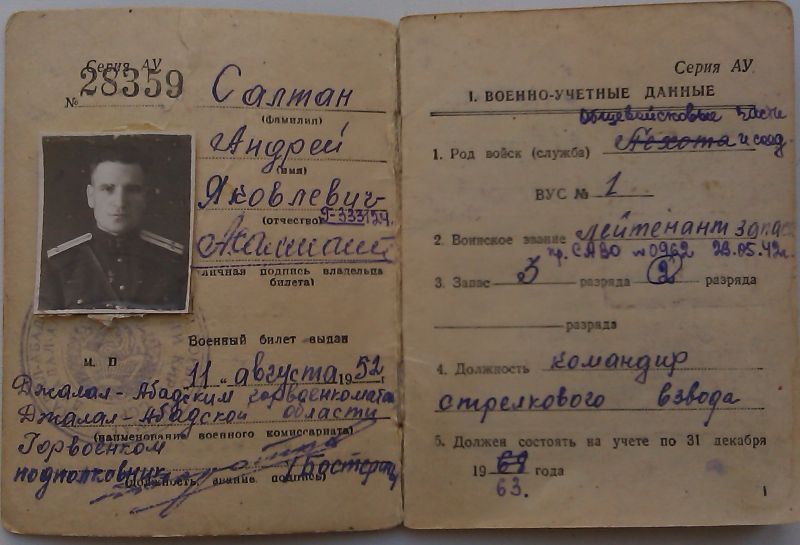 Серия АУ
№ 28359
Салтан
(фамилия)
Андрей
(имя)
Яковлевич
(отчество)
Г-333124.
(личная подпись владельца
билета)
Военный билет выдан
М. П
„11„ августа 1952 г.
Джалал-Абадским горвоенкоматом
Джалал-Абадской области
(наименование военного комиссариата)
Горвоенком
подполковник
(должность, звание подпись)
Серия АУ
1. ВОЕННО-УЧЕТНЫЕ ДАННЫЕ
Общевойсковые части
1. Род войск (служба) Пехота и соед.
ВУС № 1
2. Воинское звание лейтенант запаса
пр. САВО № 0962 23.05.42г.
3. Запас 3 разряда 2 разряда
разряда
4. Должность командир
стрелкового взвода
5. Должен состоять на учете по 31 декабря
19 года
63.
1